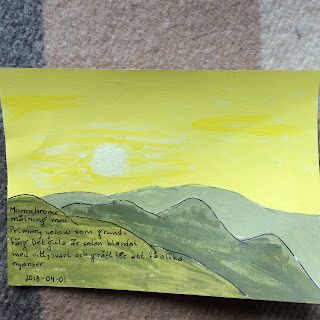 Monochrome
målning med
Primary yellow som grund-
färg. Det gula är sedan blandat
med vitt, svart och grått för att få olika
nyanser
2018-04-01